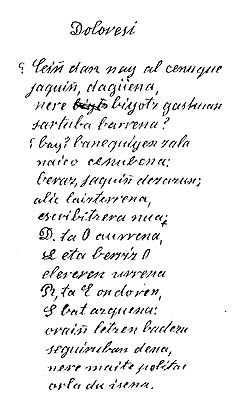 Doloresi
¿Ceiñ dan nay al cenuque
jaquiñ, dagüena,
nere biyotz gastuan
sartuba barrena?
¿bay? banequiyen zala
naico cenubena;
beraz, jaquiñ dezazun;
alic laisterrena,
escribitzera nua,
D. ta O aurrena,
L eta berriz O
eleveren urrena
R, ta E ondoren,
S bat azquena:
orain letren badezu
seguruban dena,
nere maite politac
orla du isena.